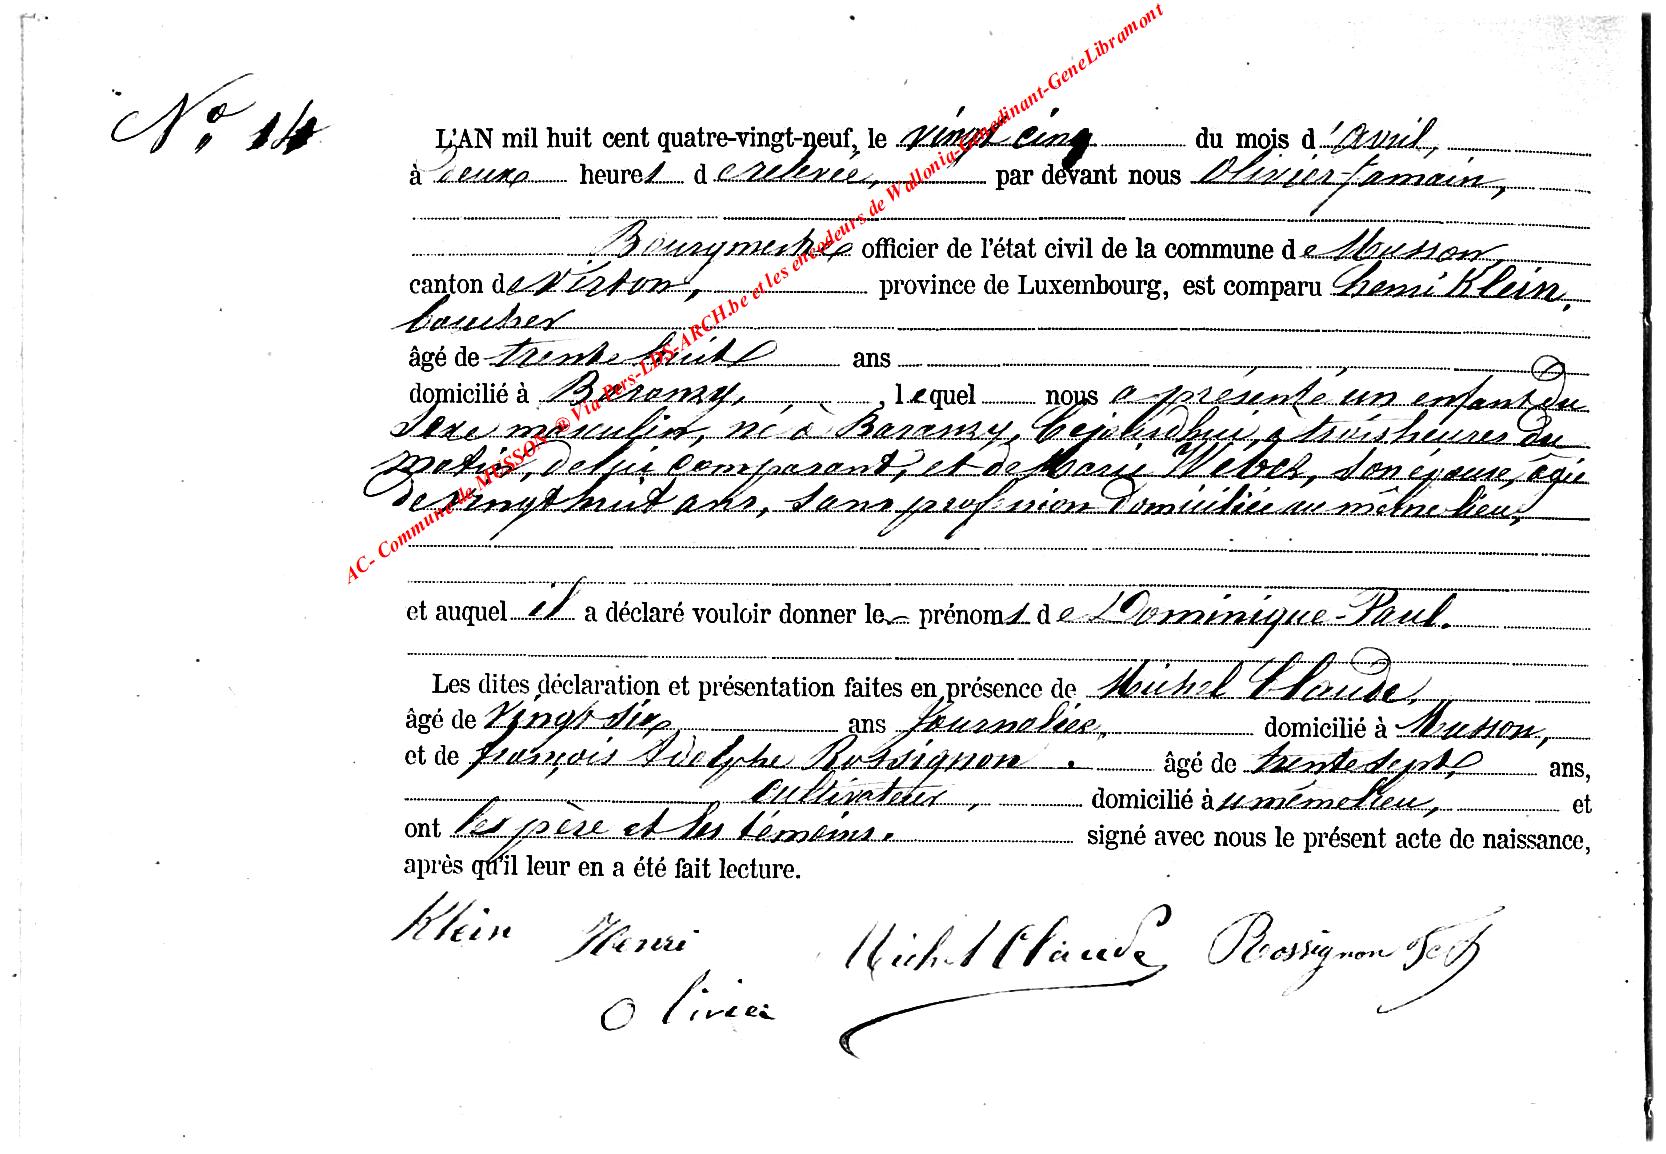 N° 14
L'AN mil huit cent quatre-vingt-neuf, le vingt cinq du mois d'avril,
à deux heures de relevée, par devant nous Olivier Jamain,
Bourgmestre officier de l'état civil de la commune de Musson,
canton de Virton, province de Luxembourg, est comparu henri Klein,
boucher
âgé de trente huit ans
domicilié à Baranzy, , lequel nous a présenté un enfant du
sexe masculin, né à Baranzy, cejourd'hui, à trois heures du
matin, de lui comparant, et de Marie Weber, son épouse, âgée
de vingt huit ans, sans profession domiciliée au même lieu,
et auquel il a déclaré vouloir donner les prénoms de Dominique-Paul.
Les dites déclaration et présentation faites en présence de Michel Claude,
âgé de vingt six ans Journalier, domicilié à Musson,
et de françois Adolphe Rossignon . âgé de trente sept ans,
cultivateur, domicilié àu même lieu, et
ont les père et les témoins. signé avec nous le présent acte de naissance,
après qu'il leur en a été fait lecture.
Klein Henri Michel Claude Rossignon
Olivier
AC- Commune de MUSSON ® Via Pers-LDS-ARCH.be et les encodeurs de Wallonia-Genedinant-GeneLibramont